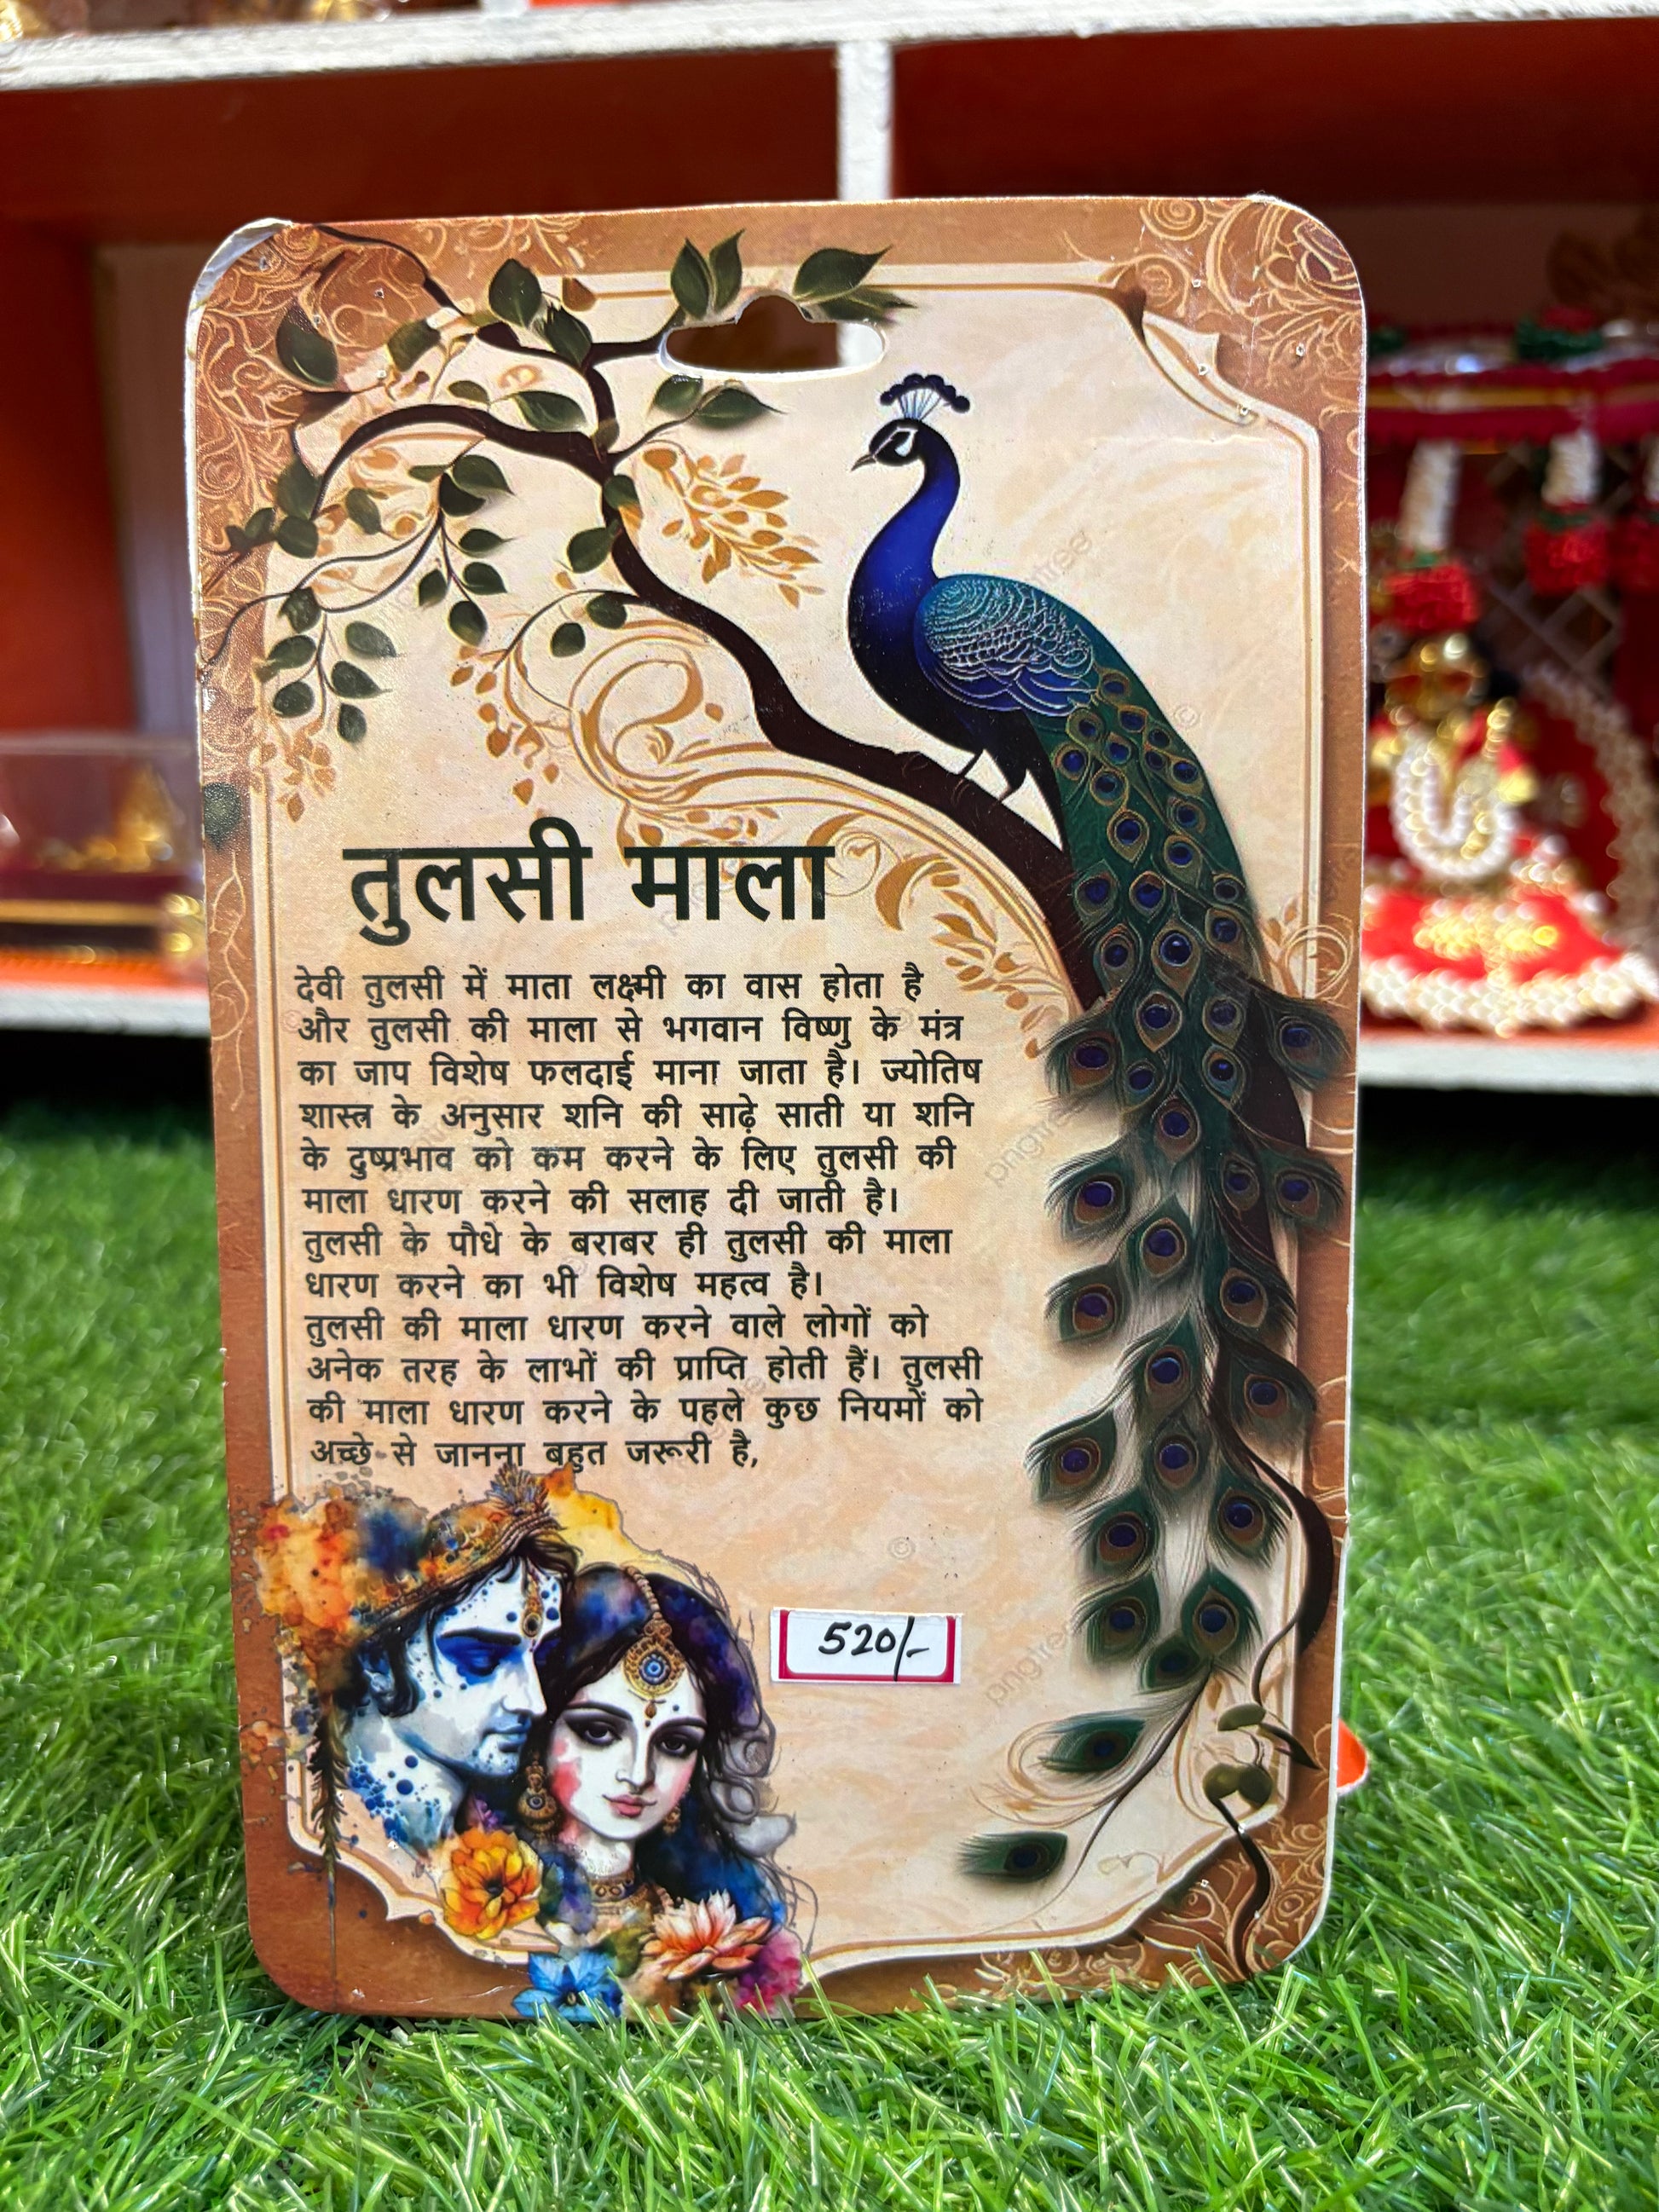 तुलसी माला
देवी तुलसी में माता लक्ष्मी का वास होता है
और तुलसी की माला से भगवान विष्णु के मंत्र
का जाप विशेष फलदाई माना जाता है। ज्योतिष
शास्त्र के अनुसार शनि की साढ़े साती या शनि
के दुष्प्रभाव को कम करने के लिए तुलसी की
माला धारण करने की सलाह दी जाती है।
तुलसी के पौधे के बराबर ही तुलसी की माला
धारण करने का भी विशेष महत्व है।
तुलसी की माला धारण करने वाले लोगों को
अनेक तरह के लाभों की प्राप्ति होती हैं। तुलसी
की माला धारण करने के पहले कुछ नियमों को
अच्छे-से जानना बहुत जरूरी है,
520/-
pngtree